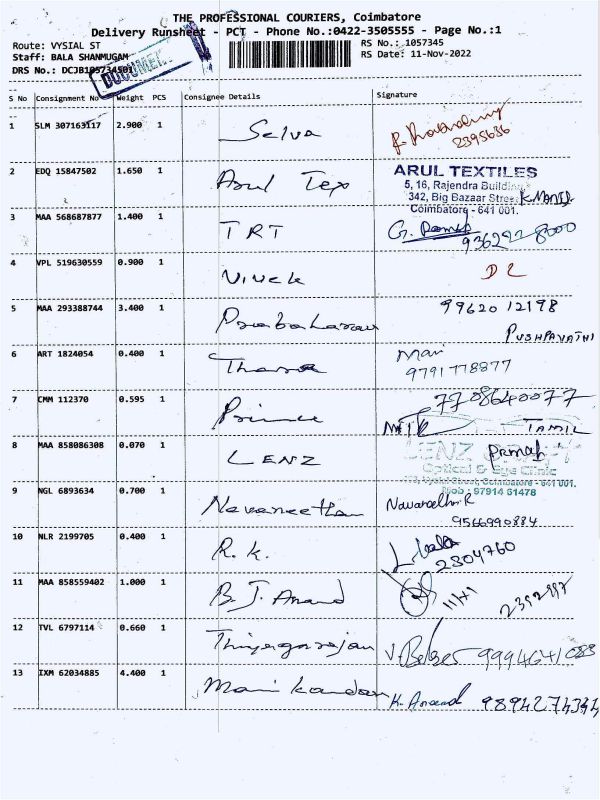 THE PROFESSIONAL COURIERS, Coimbatore
Delivery Runsheet - PCT - Phone No.:0422-3505555 - Page No.:1
Route: VYSIAL ST
RS No.: 1057345
Staff: BALA SHANMUGAM
RS Date: 11-Nov-2022
DRS No.: DCJB105734501
S No Consignment No Weight PCS Consignee Details Signature
1 SLM 307163117 2.900 1 Selva
2395636
2 EDQ 15847502 1.650 1 Arul Tex
ARUL TEXTILES
5, 16, Rajendra Building
342, Big Bazaar Street
Coimbatore - 641 001.
3 MAA 568687877 1.400 1 TRT
4 VPL 519630559 0.900 1 Vivek
5 MAA 293388744 3.400 1 Prabakaran 99620 12198
PUSHPAVATHI
6 ART 1824054 0.400 1 Mani
9791778877
7 CMM 112370 0.595 1 Prince 7708640077
TAMIL
8 MAA 858086308 0.070 1 LENZ
Optical & Eye Clinic
Mob : 97914 61478
9 NGL 6893634 0.700 1 Navaneethan
9566990884
10 NLR 2199705 0.400 1 R.K. L. bala
2304760
11 MAA 858559402 1.000 1 B.J. Anand 11/11
12 TVL 6797114 0.660 1 Thiyagarajan
13 IXM 62034885 4.400 1 Manikandan K. Anand